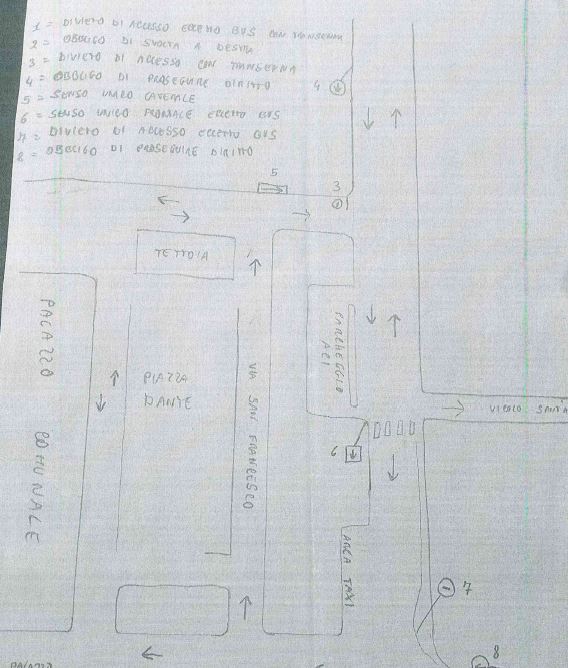 1 = DIVIETO DI ACCESSO ECCETTO BUS CON TRANSENNA
2 = OBBLIGO DI SVOLTA A DESTRA
3 = DIVIETO DI ACCESSO CON TRANSENNA
4 = OBBLIGO DI PROSEGUIRE DIRITTO
5 = SENSO UNICO
6 = SENSO UNICO FRONTALE ECCETTO BUS
7 = DIVIETO DI ACCESSO ECCETTO BUS
8 = OBBLIGO DI PROSEGUIRE DIRITTO
4
5
3
TETTOIA
PALAZZO COMUNALE
PIAZZA DANTE
VIA SAN FRANCESCO
PARCHEGGIO ACI
VICOLO SANTA
6
AREA TAXI
7
8
PALAZZO